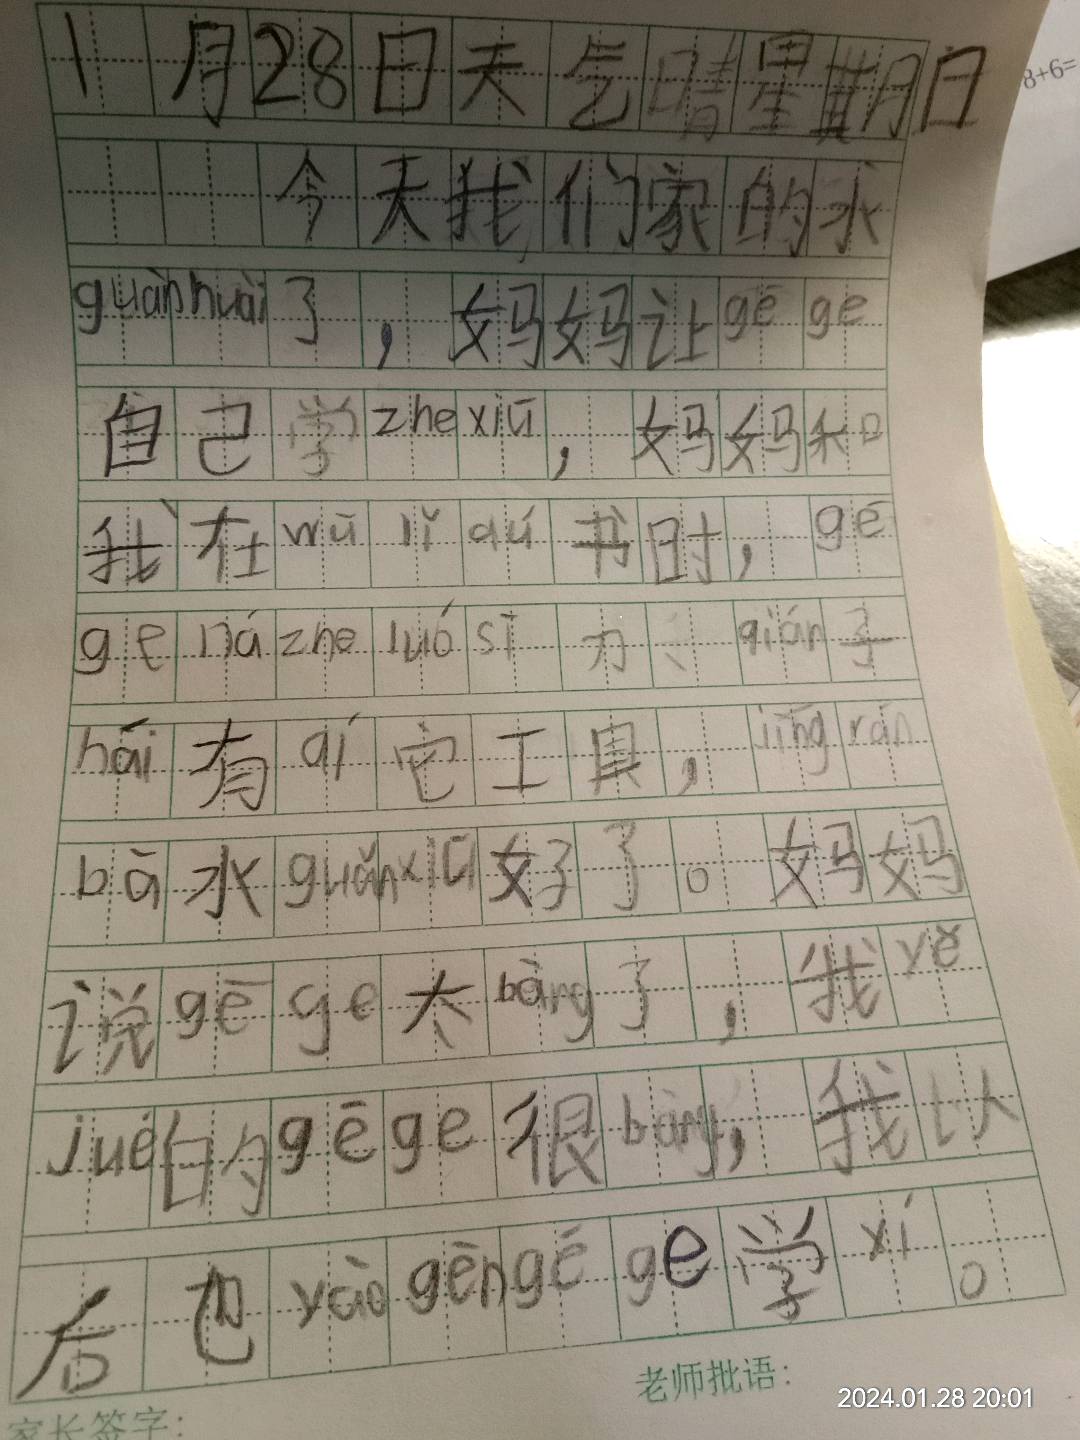 1月28日天气晴星期日
8+6=
今天我们家的水
guǎnhuài了，妈妈让gē ge
自己学zhe xiū，妈妈和
我在wū lǐ dú书时，gē
ge ná zhe luó sī 刀、qián子
hái有qí它工具，jīng rán
bǎ水guǎnxiū好了。妈妈
说gē ge太bàng了，我yě
jué的gē ge很bàng，我以
后也yào gēn gē ge学xí。
老师批语：
家长签字：
2024.01.28 20:01